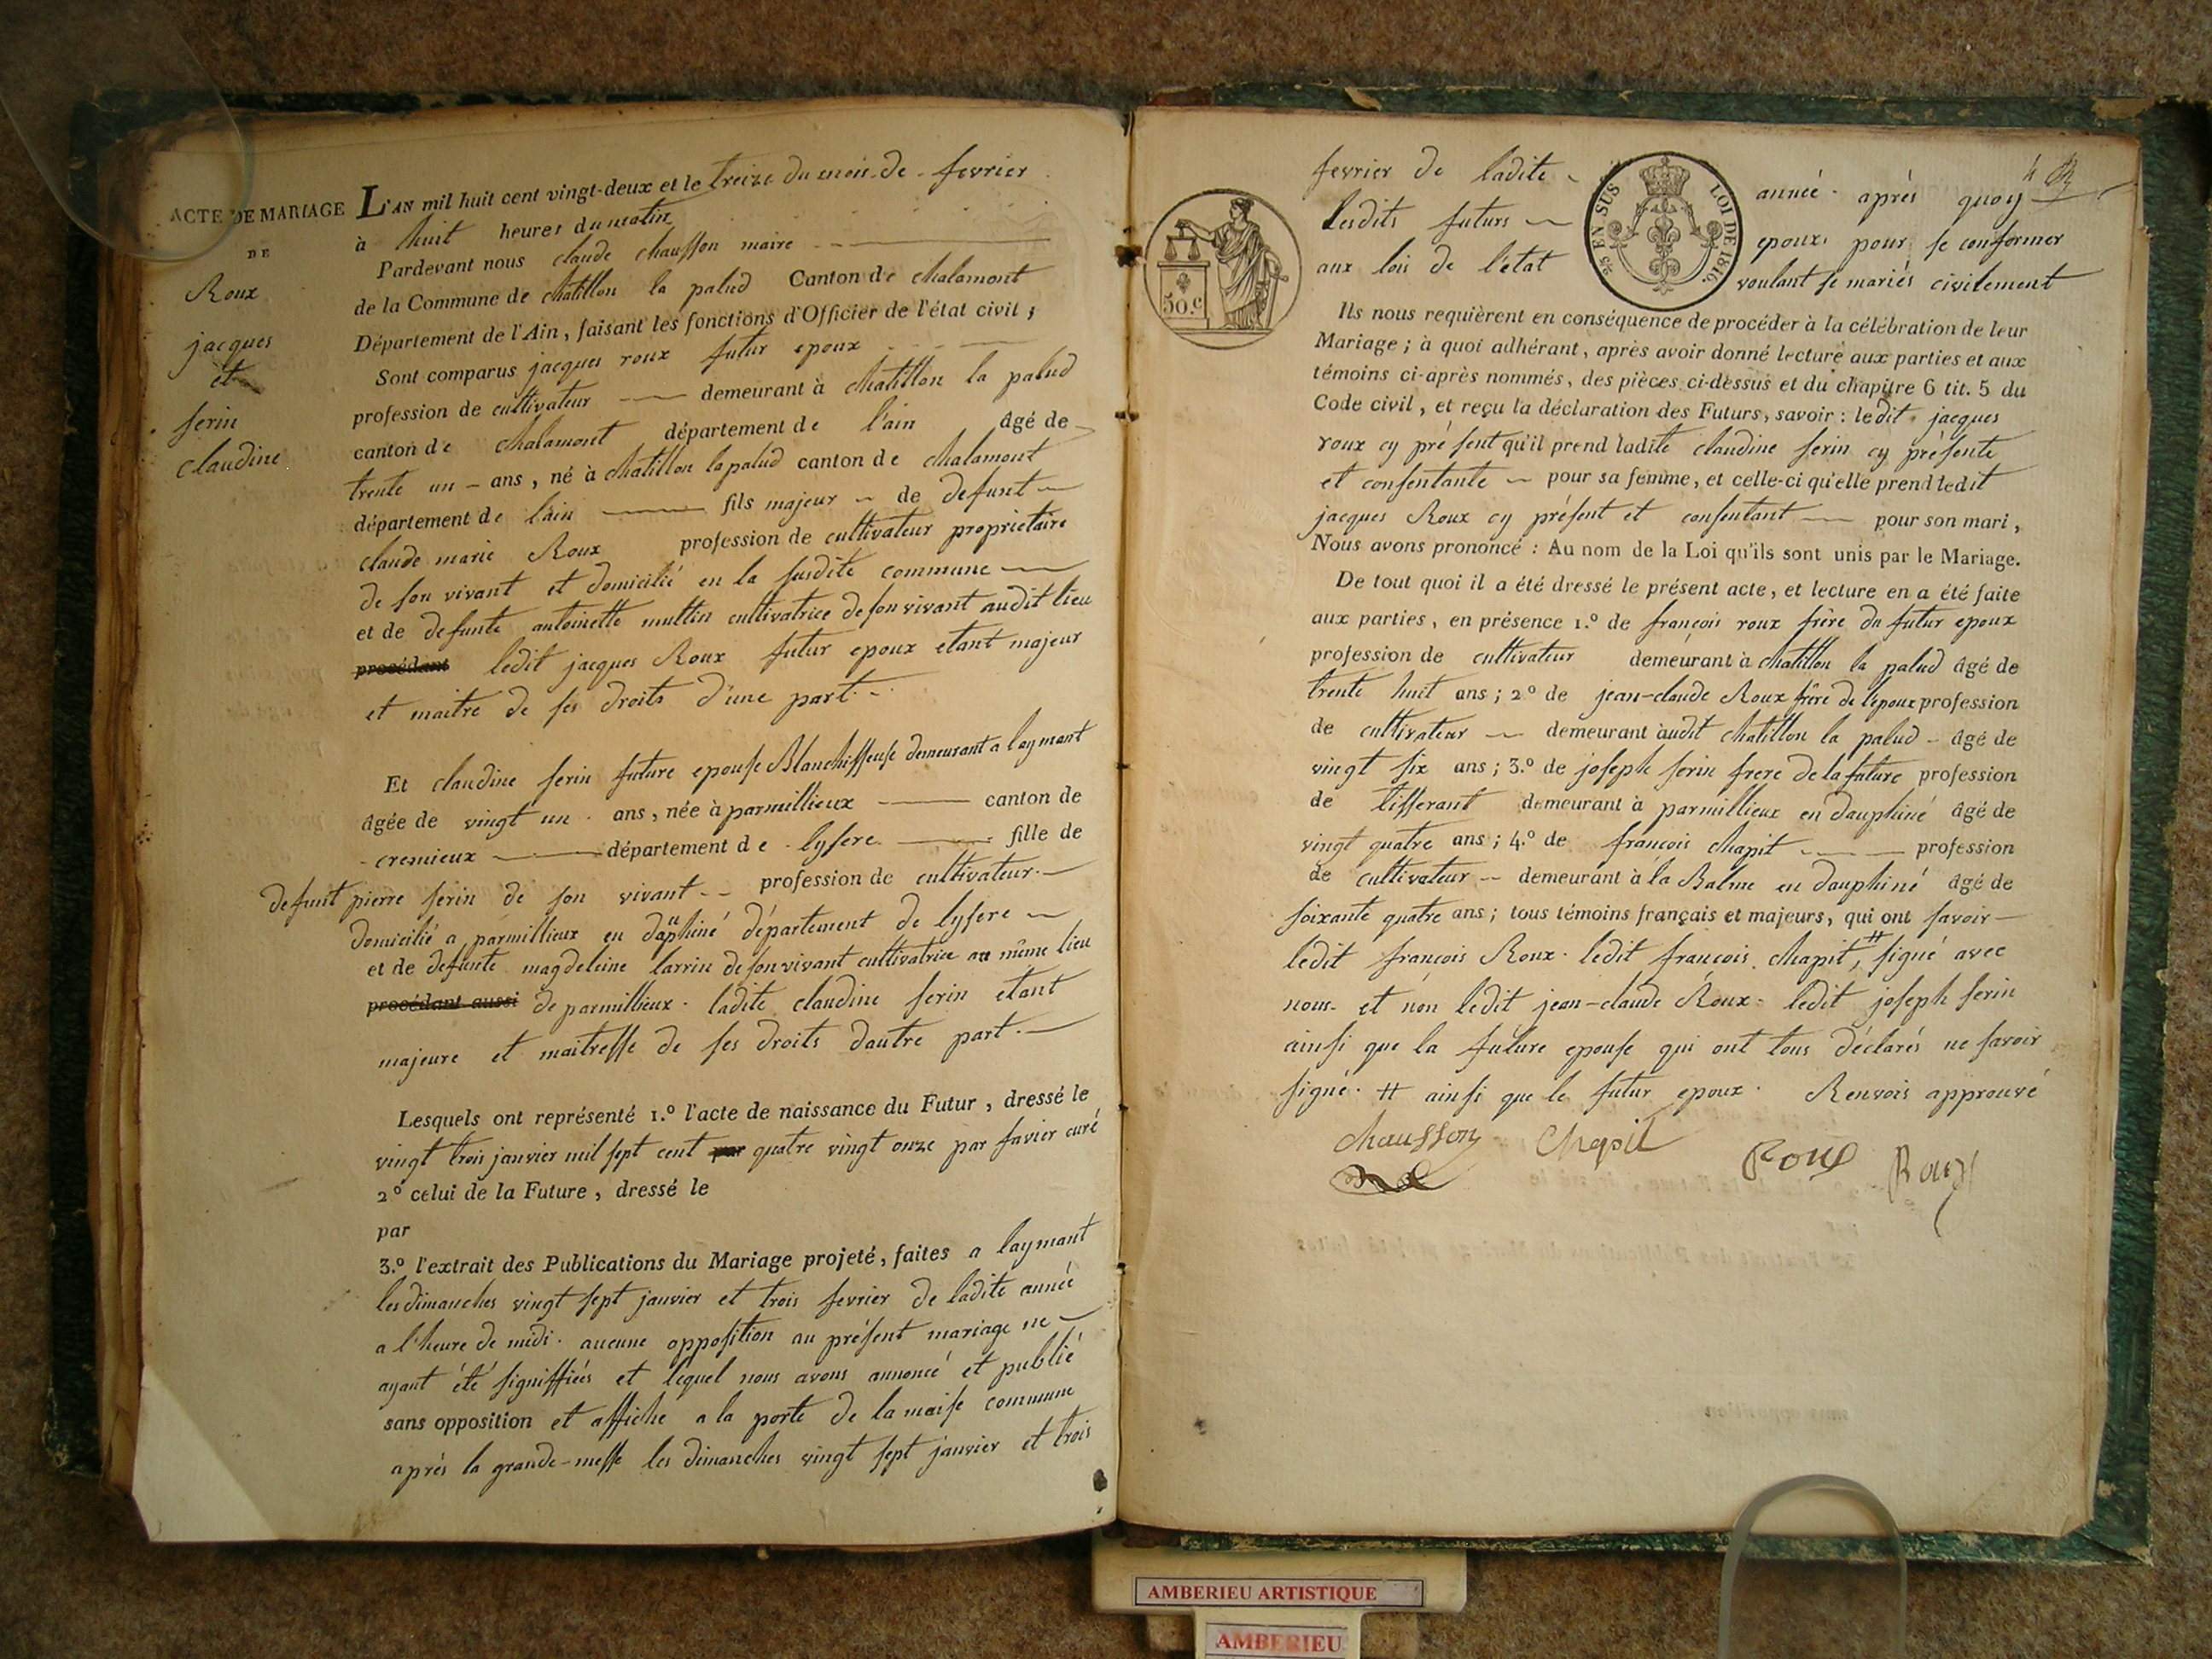 ACTE DE MARIAGE
DE
Roux
jacques
et
serin
claudine
L'AN mil huit cent vingt-deux et le treize du mois de fevrier
à huit heures du matin
Pardevant nous claude chausson maire
de la Commune de chatillon la palud Canton de chalamont
Département de l'Ain, faisant les fonctions d'Officier de l'état civil ;
Sont comparus jacques roux futur epoux
profession de cultivateur demeurant à chatillon la palud
canton de chalamont département de l'ain âgé de
trente un ans, né à chatillon lapalud canton de chalamont
département de l'ain fils majeur de defunt
claude marie Roux profession de cultivateur proprietaire
de son vivant et domicilié en la susdite commune
et de defunte antoinette multin cultivatrice de son vivant audit lieu
procédant ledit jacques Roux futur epoux etant majeur
et maitre de ses droits d'une part.
Et claudine serin future epouse Blanchisseuse demeurant a loymont
âgée de vingt un ans, née à parmillieux canton de
cremieux département de lysere fille de
defunt pierre serin de son vivant profession de cultivateur
domicilié a parmillieux en dauphiné département de lysere
et de defunte magdeleine larrin de son vivant cultivatrice au même lieu
procédant aussi de parmillieux. ladite claudine serin etant
majeure et maitresse de ses droits dautre part.
Lesquels ont représenté 1.º l'acte de naissance du Futur, dressé le
vingt trois janvier mil sept cent quatre vingt onze par favier curé
2º celui de la Future, dressé le
par
3.º l'extrait des Publications du Mariage projeté, faites a laymant
les dimanches vingt sept janvier et trois fevrier de ladite année
a l'heure de midi. aucune opposition au présent mariage ne
ayant été signiffiés et lequel nous avons annoncé et publié
sans opposition et affiché a la porte de la maise commune
après la grande-messe les dimanches vingt sept janvier et trois
fevrier de ladite année. après quoy
lesdits futurs epoux, pour se conformer
aux lois de l'état voulant se mariés civilement
50.c
25 EN SUS
LOI DE 1816.
4
Ils nous requièrent en conséquence de procéder à la célébration de leur
Mariage ; à quoi adhérant, après avoir donné lecture aux parties et aux
témoins ci-après nommés, des pièces ci-dessus et du chapitre 6 tit. 5 du
Code civil, et reçu la déclaration des Futurs, savoir : ledit jacques
roux cy présent qu'il prend ladite claudine serin cy présente
et consentante pour sa femme, et celle-ci qu'elle prend ledit
jacques Roux cy présent et consentant pour son mari,
Nous avons prononcé : Au nom de la Loi qu'ils sont unis par le Mariage.
De tout quoi il a été dressé le présent acte, et lecture en a été faite
aux parties, en présence 1.º de françois roux frère du futur epoux
profession de cultivateur demeurant à chatillon la palud âgé de
trente huit ans ; 2º de jean-claude Roux frère de l'epoux profession
de cultivateur demeurant audit chatillon la palud âgé de
vingt six ans ; 3.º de joseph serin frere de la future profession
de tisserant demeurant à parmillieux en dauphiné âgé de
vingt quatre ans ; 4.º de francois chapit profession
de cultivateur demeurant à la Balme en dauphiné âgé de
soixante quatre ans ; tous témoins français et majeurs, qui ont savoir
ledit françois Roux. ledit francois chapit, # signé avec
nous. et non ledit jean-claude Roux. ledit joseph serin
ainsi que la future epouse qui ont tous déclarés ne savoir
signé. # ainsi que le futur epoux. Renvois approuvé
chausson Chapit Roux Roux
AMBERIEU ARTISTIQUE
AMBERIEU